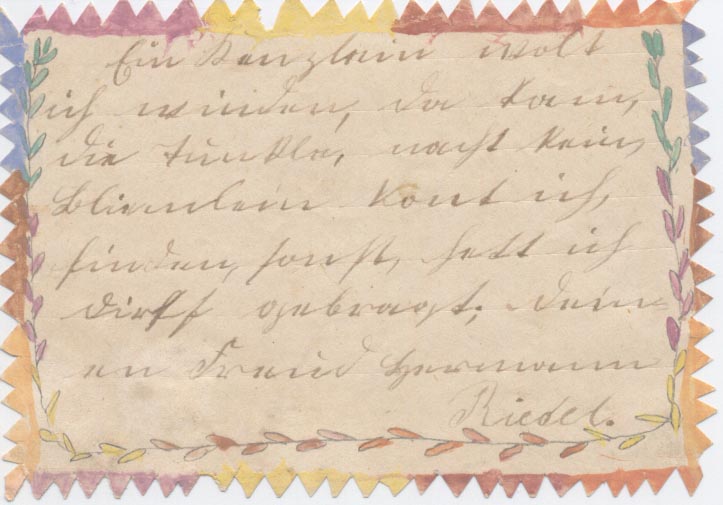 Ein Kenzlein wolt
ich winden, da kam,
die tunkle, nacht kein,
Bliemlein kont ich,
finden, sonst, hett ich
dirss gebragt; dein-
en Freind Hermann
Riedel.